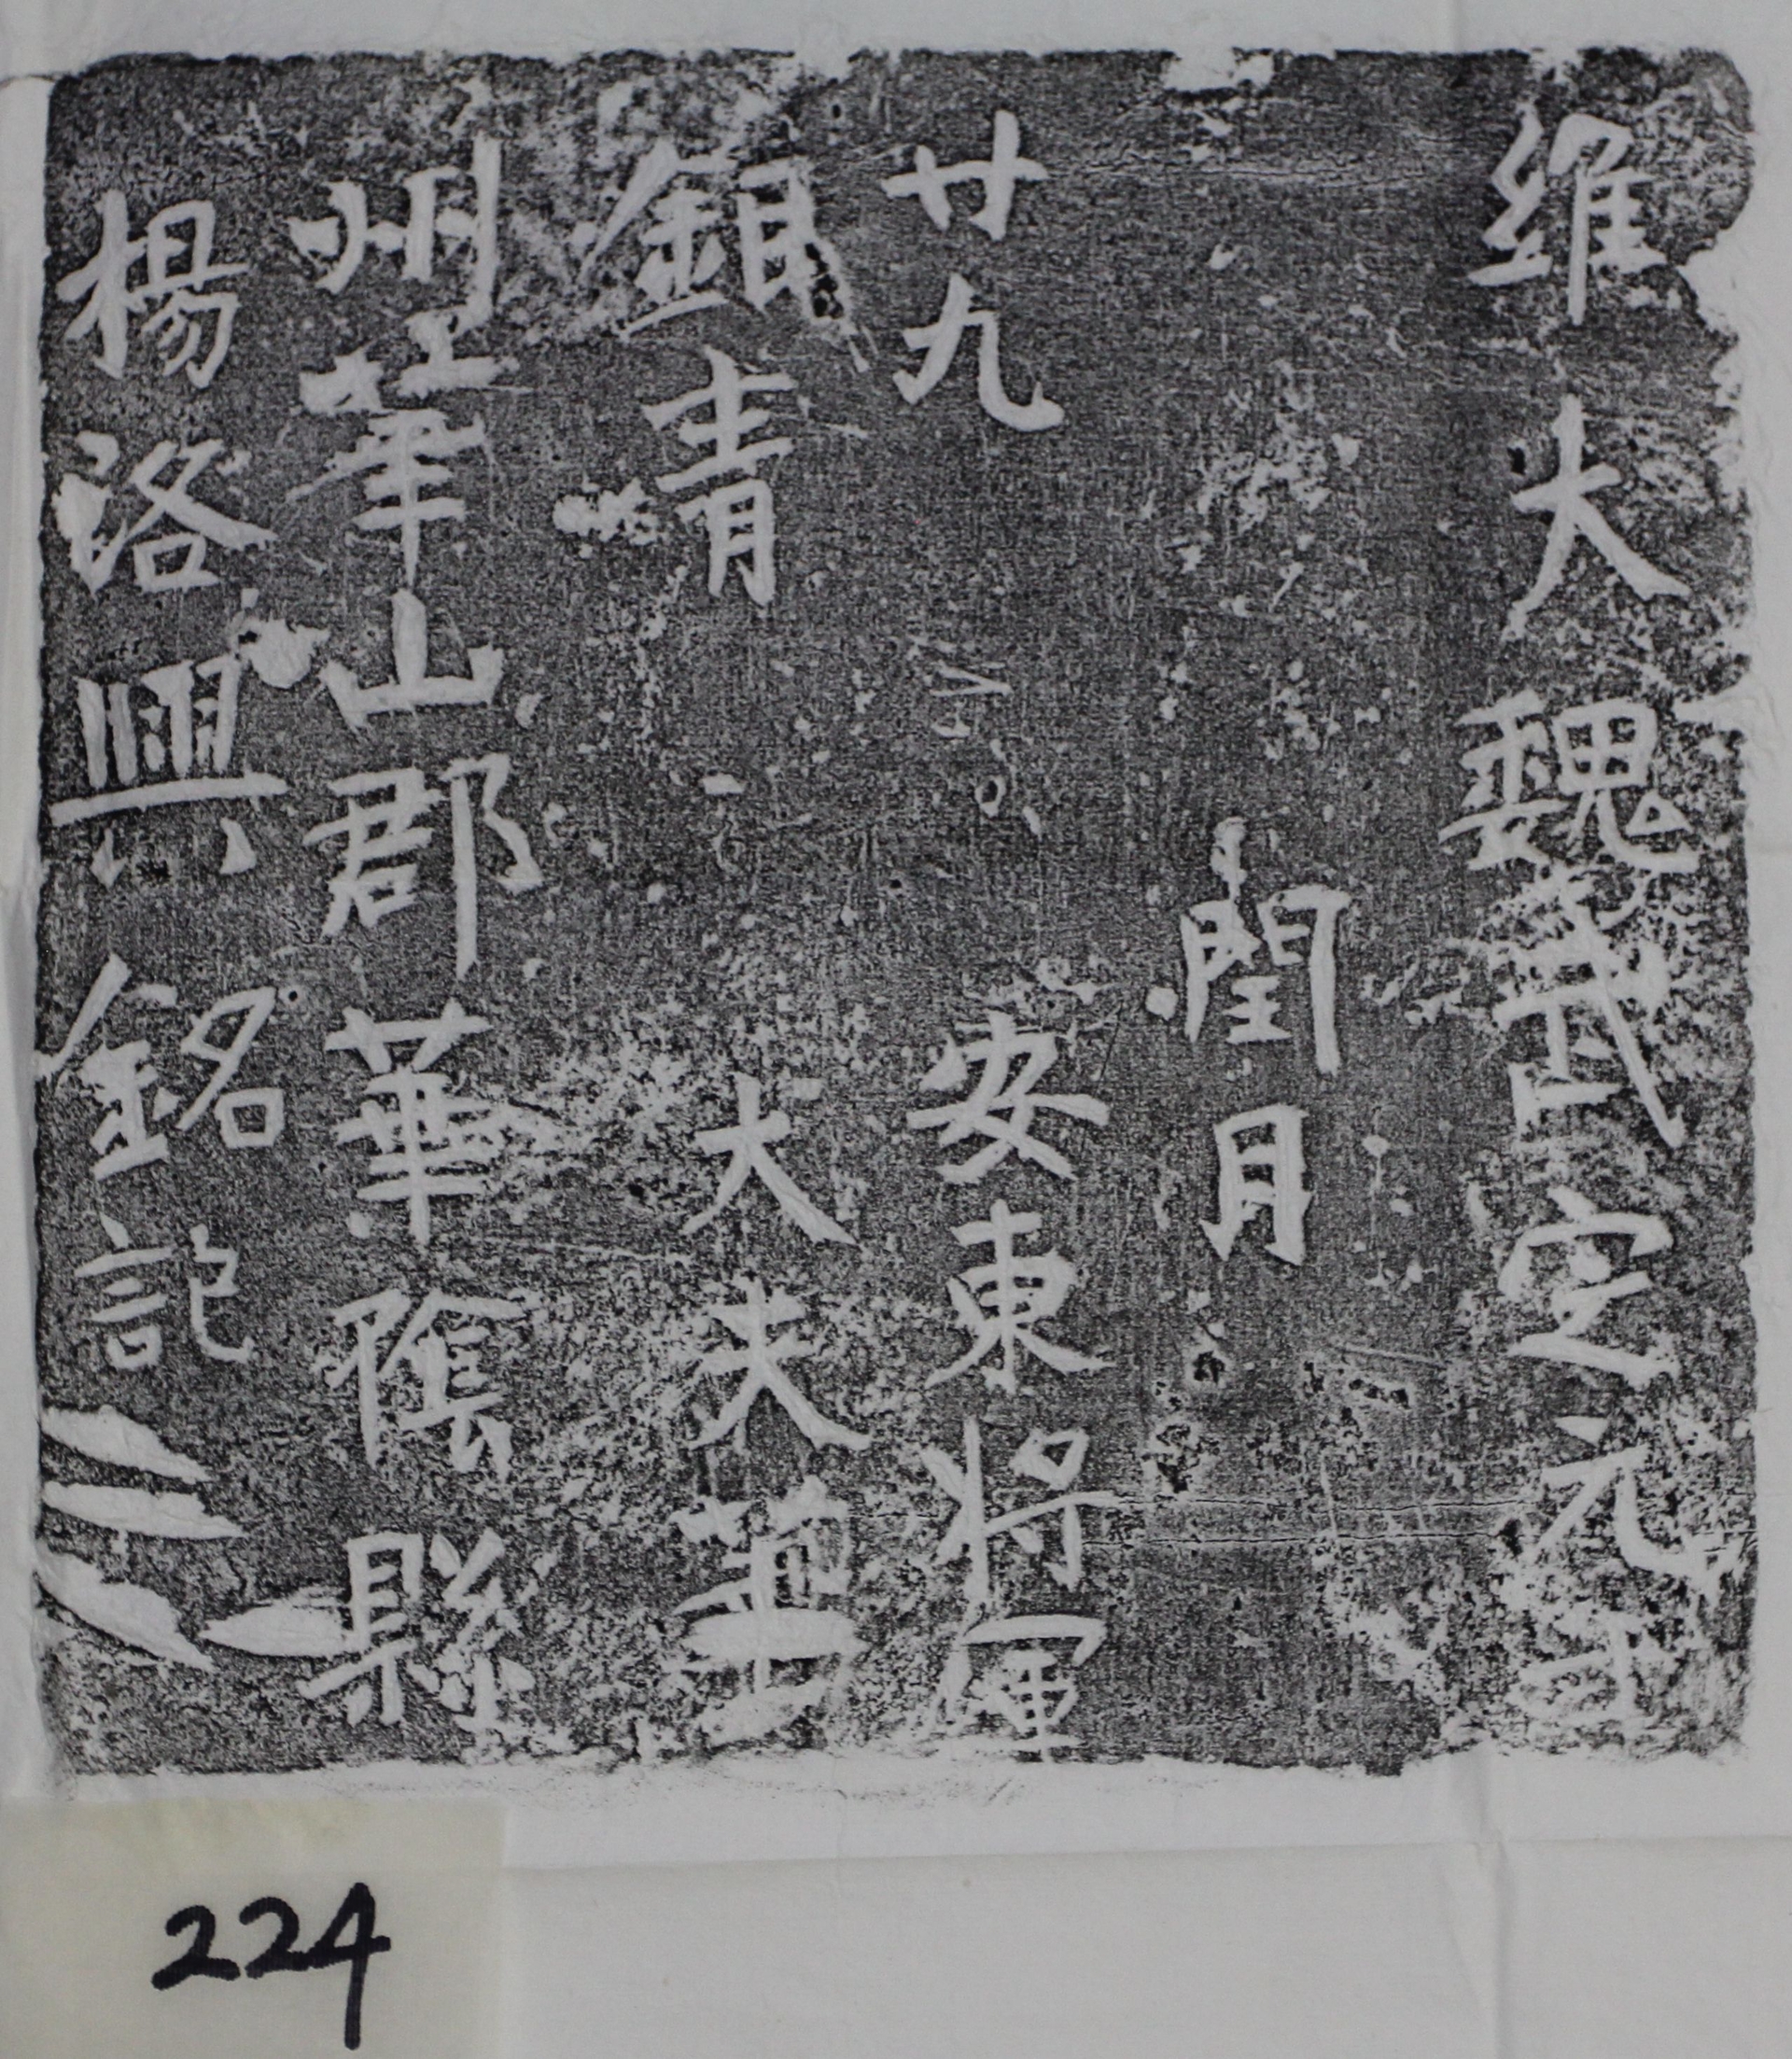 維大魏武定元年
閏月
廿九 安東將軍
銀青 大夫華
州華山郡華陰縣
楊洛興銘記
224